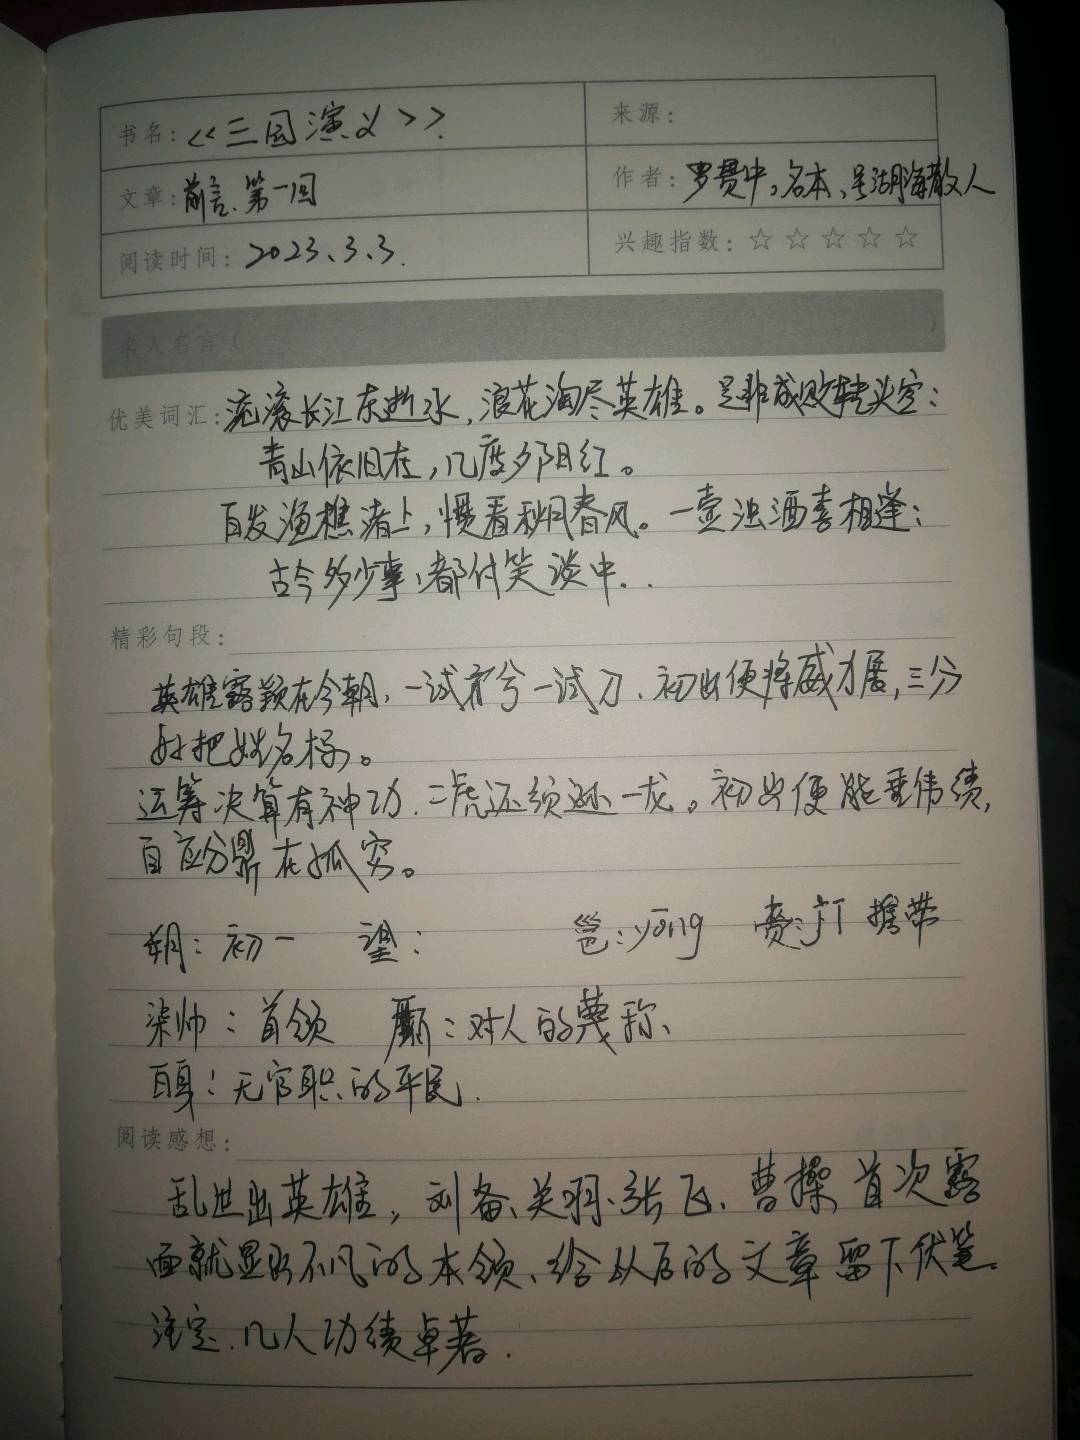 书名：《三国演义》.
来源：
文章：前言、第一回
作者：罗贯中。名本、号湖海散人
阅读时间：2023、3、3.
兴趣指数：☆☆☆☆☆
名人名言（ ）
优美词汇：滚滚长江东逝水，浪花淘尽英雄。是非成败转头空：
青山依旧在，几度夕阳红。
白发渔樵渚上，惯看秋月春风。一壶浊酒喜相逢；
古今多少事，都付笑谈中..
精彩句段：
英雄露颖在今朝，一试矛兮一试刀．初出便将威力展，三分
好把姓名标。
运筹决算有神功．二虎还须逊一龙。初出便能垂伟绩，
自应分鼎在孤穷。
朔：初一 望： 邕：yōng 赍：jī 携带
渠帅：首领 厮：对人的蔑称、
白身：无官职的平民．
阅读感想：
乱世出英雄，刘备、关羽、张飞、曹操首次露
面就显出不凡的本领、给以后的文章留下伏笔
注定．几人功绩卓著．